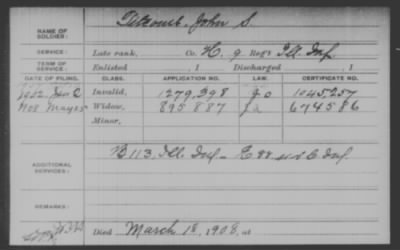 NAME OF SOLDIER: Titcomb, John S.
SERVICE: Late rank, Co. H, 9 Reg't Ill. Inf.
TERM OF SERVICE: Enlisted , 1 Discharged , 1
DATE OF FILING. CLASS. APPLICATION NO. LAW. CERTIFICATE NO.
Invalid, 1279,398 1045257
Widow, 895,887 674586
Minor,
ADDITIONAL SERVICES: B 113, Ill. Inf. - E 88 Inf.
REMARKS:
Died March 18, 1908, at